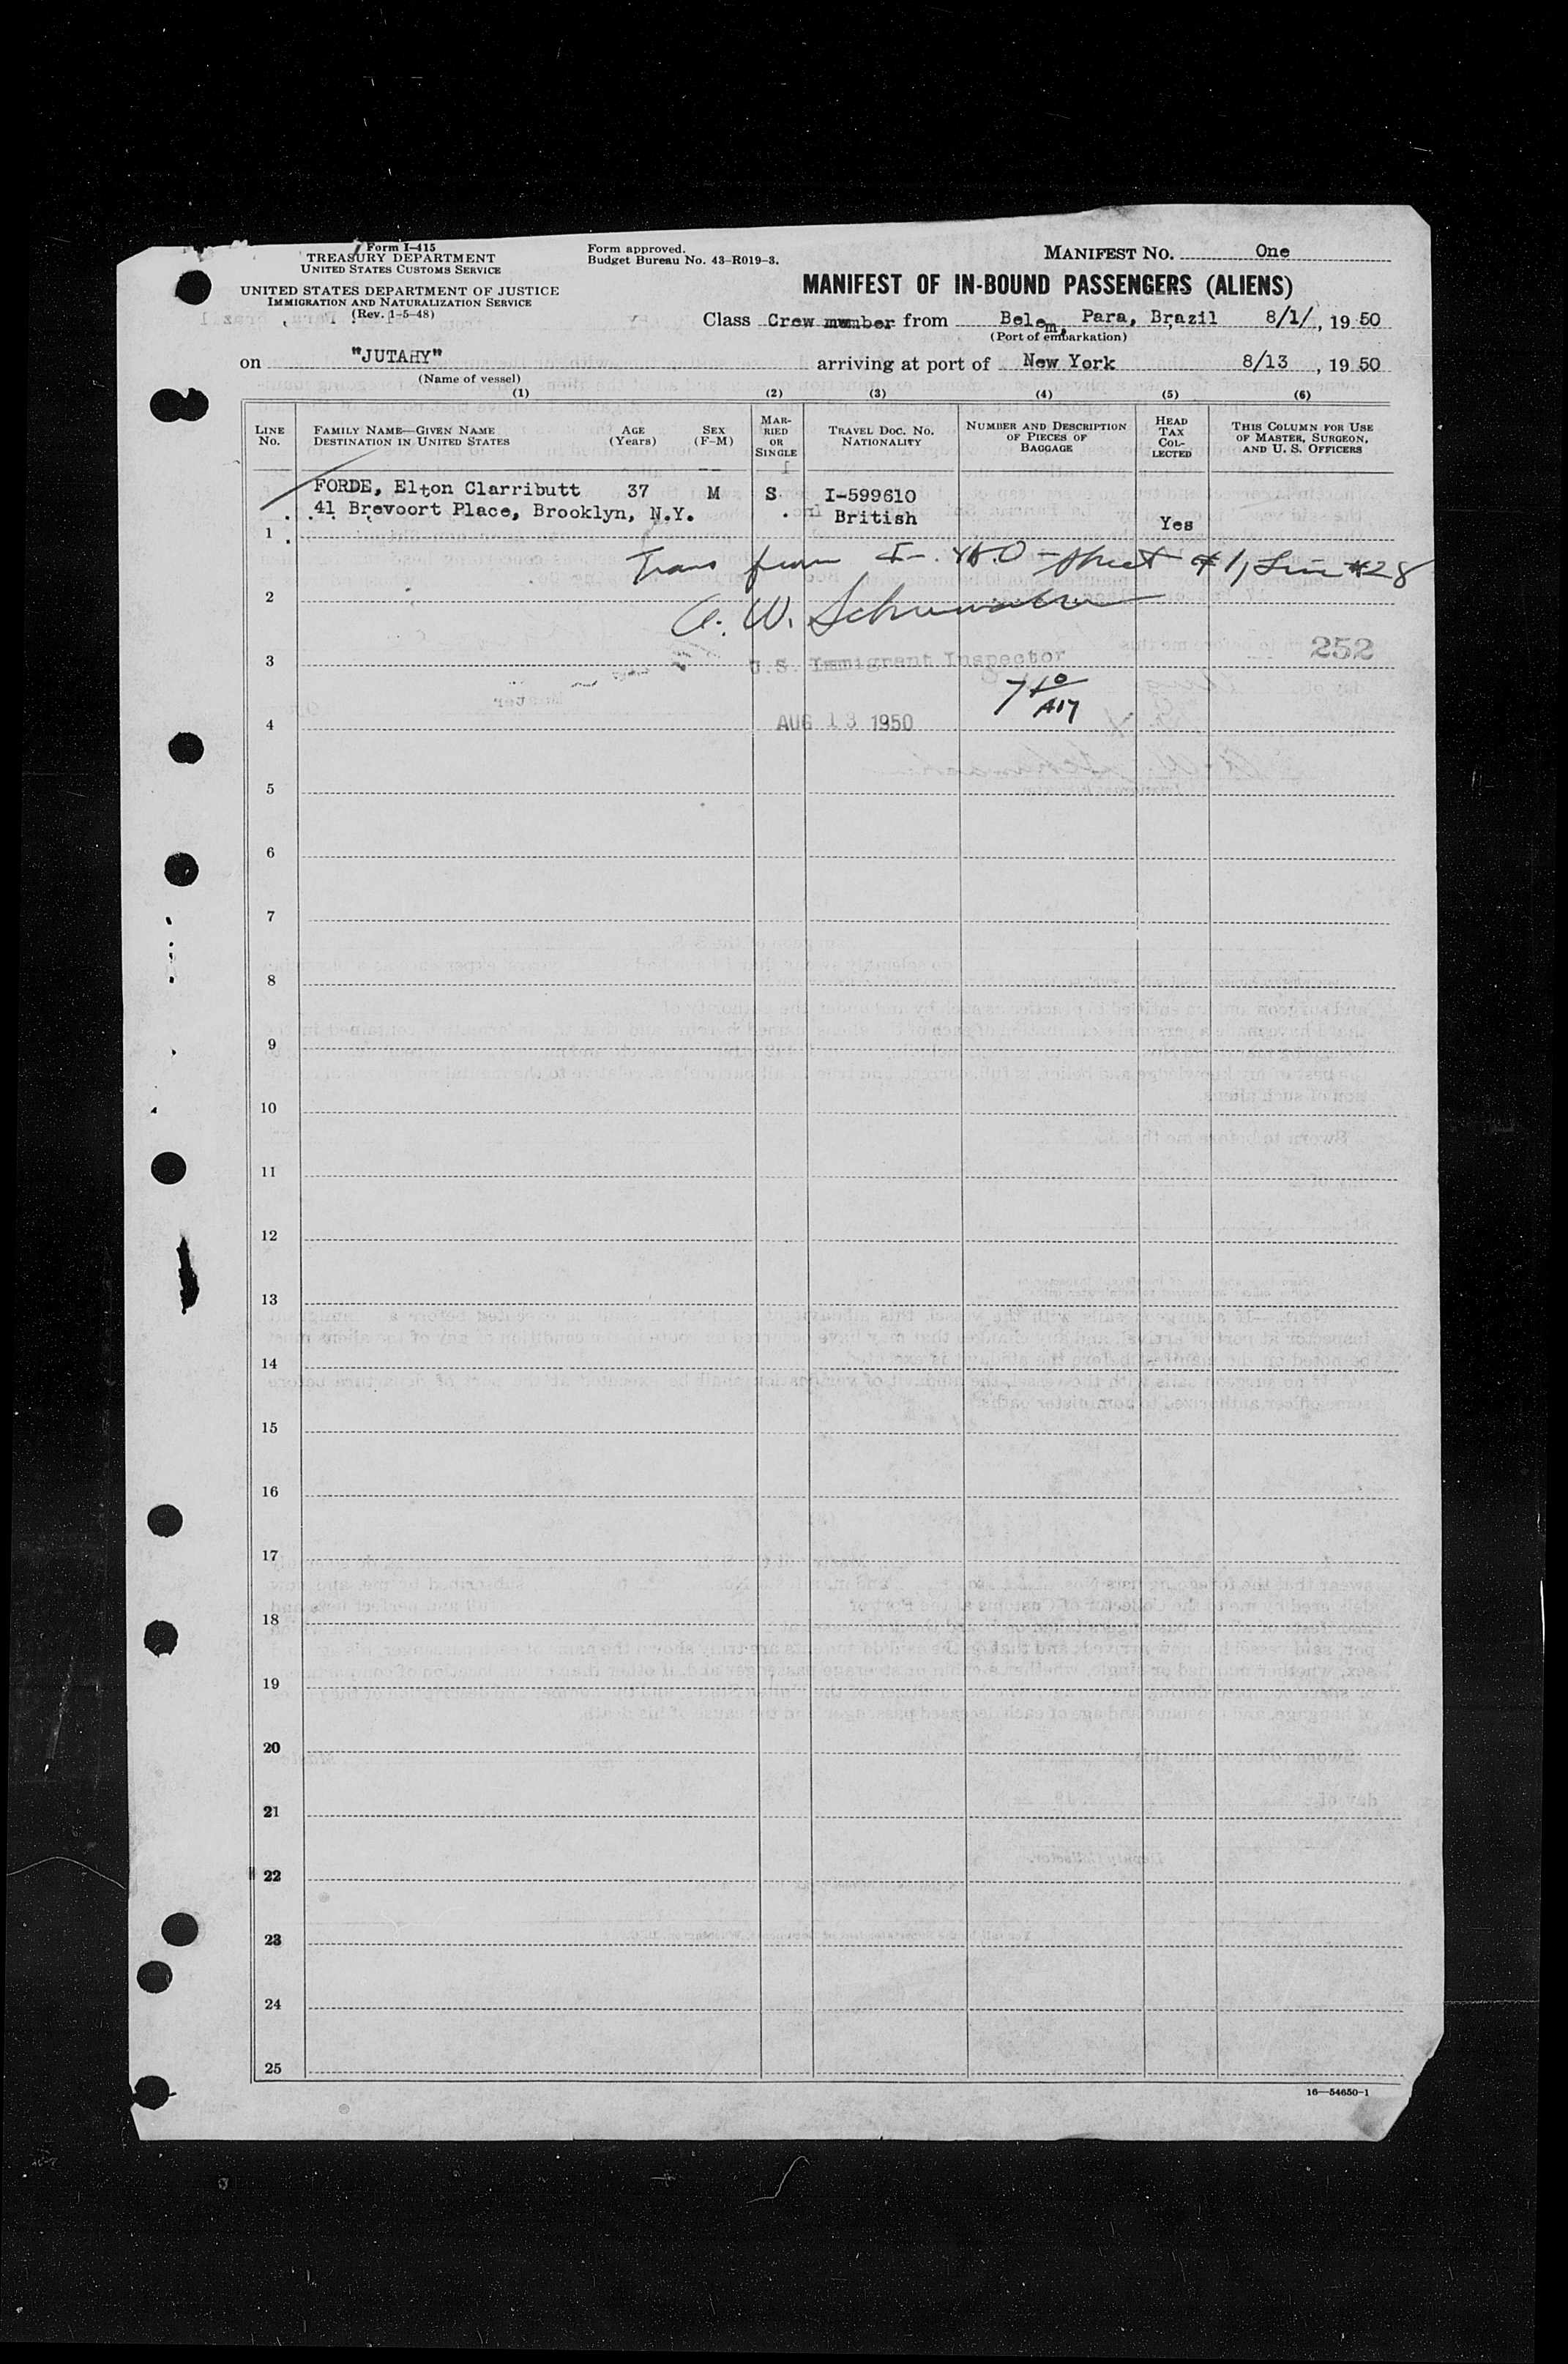 Form I-415
TREASURY DEPARTMENT
UNITED STATES CUSTOMS SERVICE
UNITED STATES DEPARTMENT OF JUSTICE
IMMIGRATION AND NATURALIZATION SERVICE
(Rev. 1-5-48)
Form approved.
Budget Bureau No. 43-R019-3.
MANIFEST NO. One
MANIFEST OF IN-BOUND PASSENGERS (ALIENS)
Class Crew member from Belem, Para, Brazil 8/1/, 1950
(Port of embarkation)
on "JUTAHY" arriving at port of New York 8/13, 1950
(Name of vessel)
(1) (2) (3) (4) (5) (6)
LINE No.
FAMILY NAME—GIVEN NAME
DESTINATION IN UNITED STATES
AGE (Years)
SEX (F-M)
MARRIED OR SINGLE
TRAVEL DOC. NO.
NATIONALITY
NUMBER AND DESCRIPTION OF PIECES OF BAGGAGE
HEAD TAX COLLECTED
THIS COLUMN FOR USE OF MASTER, SURGEON, AND U. S. OFFICERS
FORDE, Elton Clarributt 37 M S I-599610
41 Brevoort Place, Brooklyn, N.Y. British Yes
1
Trans from I- sheet #1, Line #28
2
A. W.
3 U.S. Immigrant Inspector 252
4 AUG 13 1950
5
6
7
8
9
10
11
12
13
14
15
16
17
18
19
20
21
22
23
24
25
16—54650-1